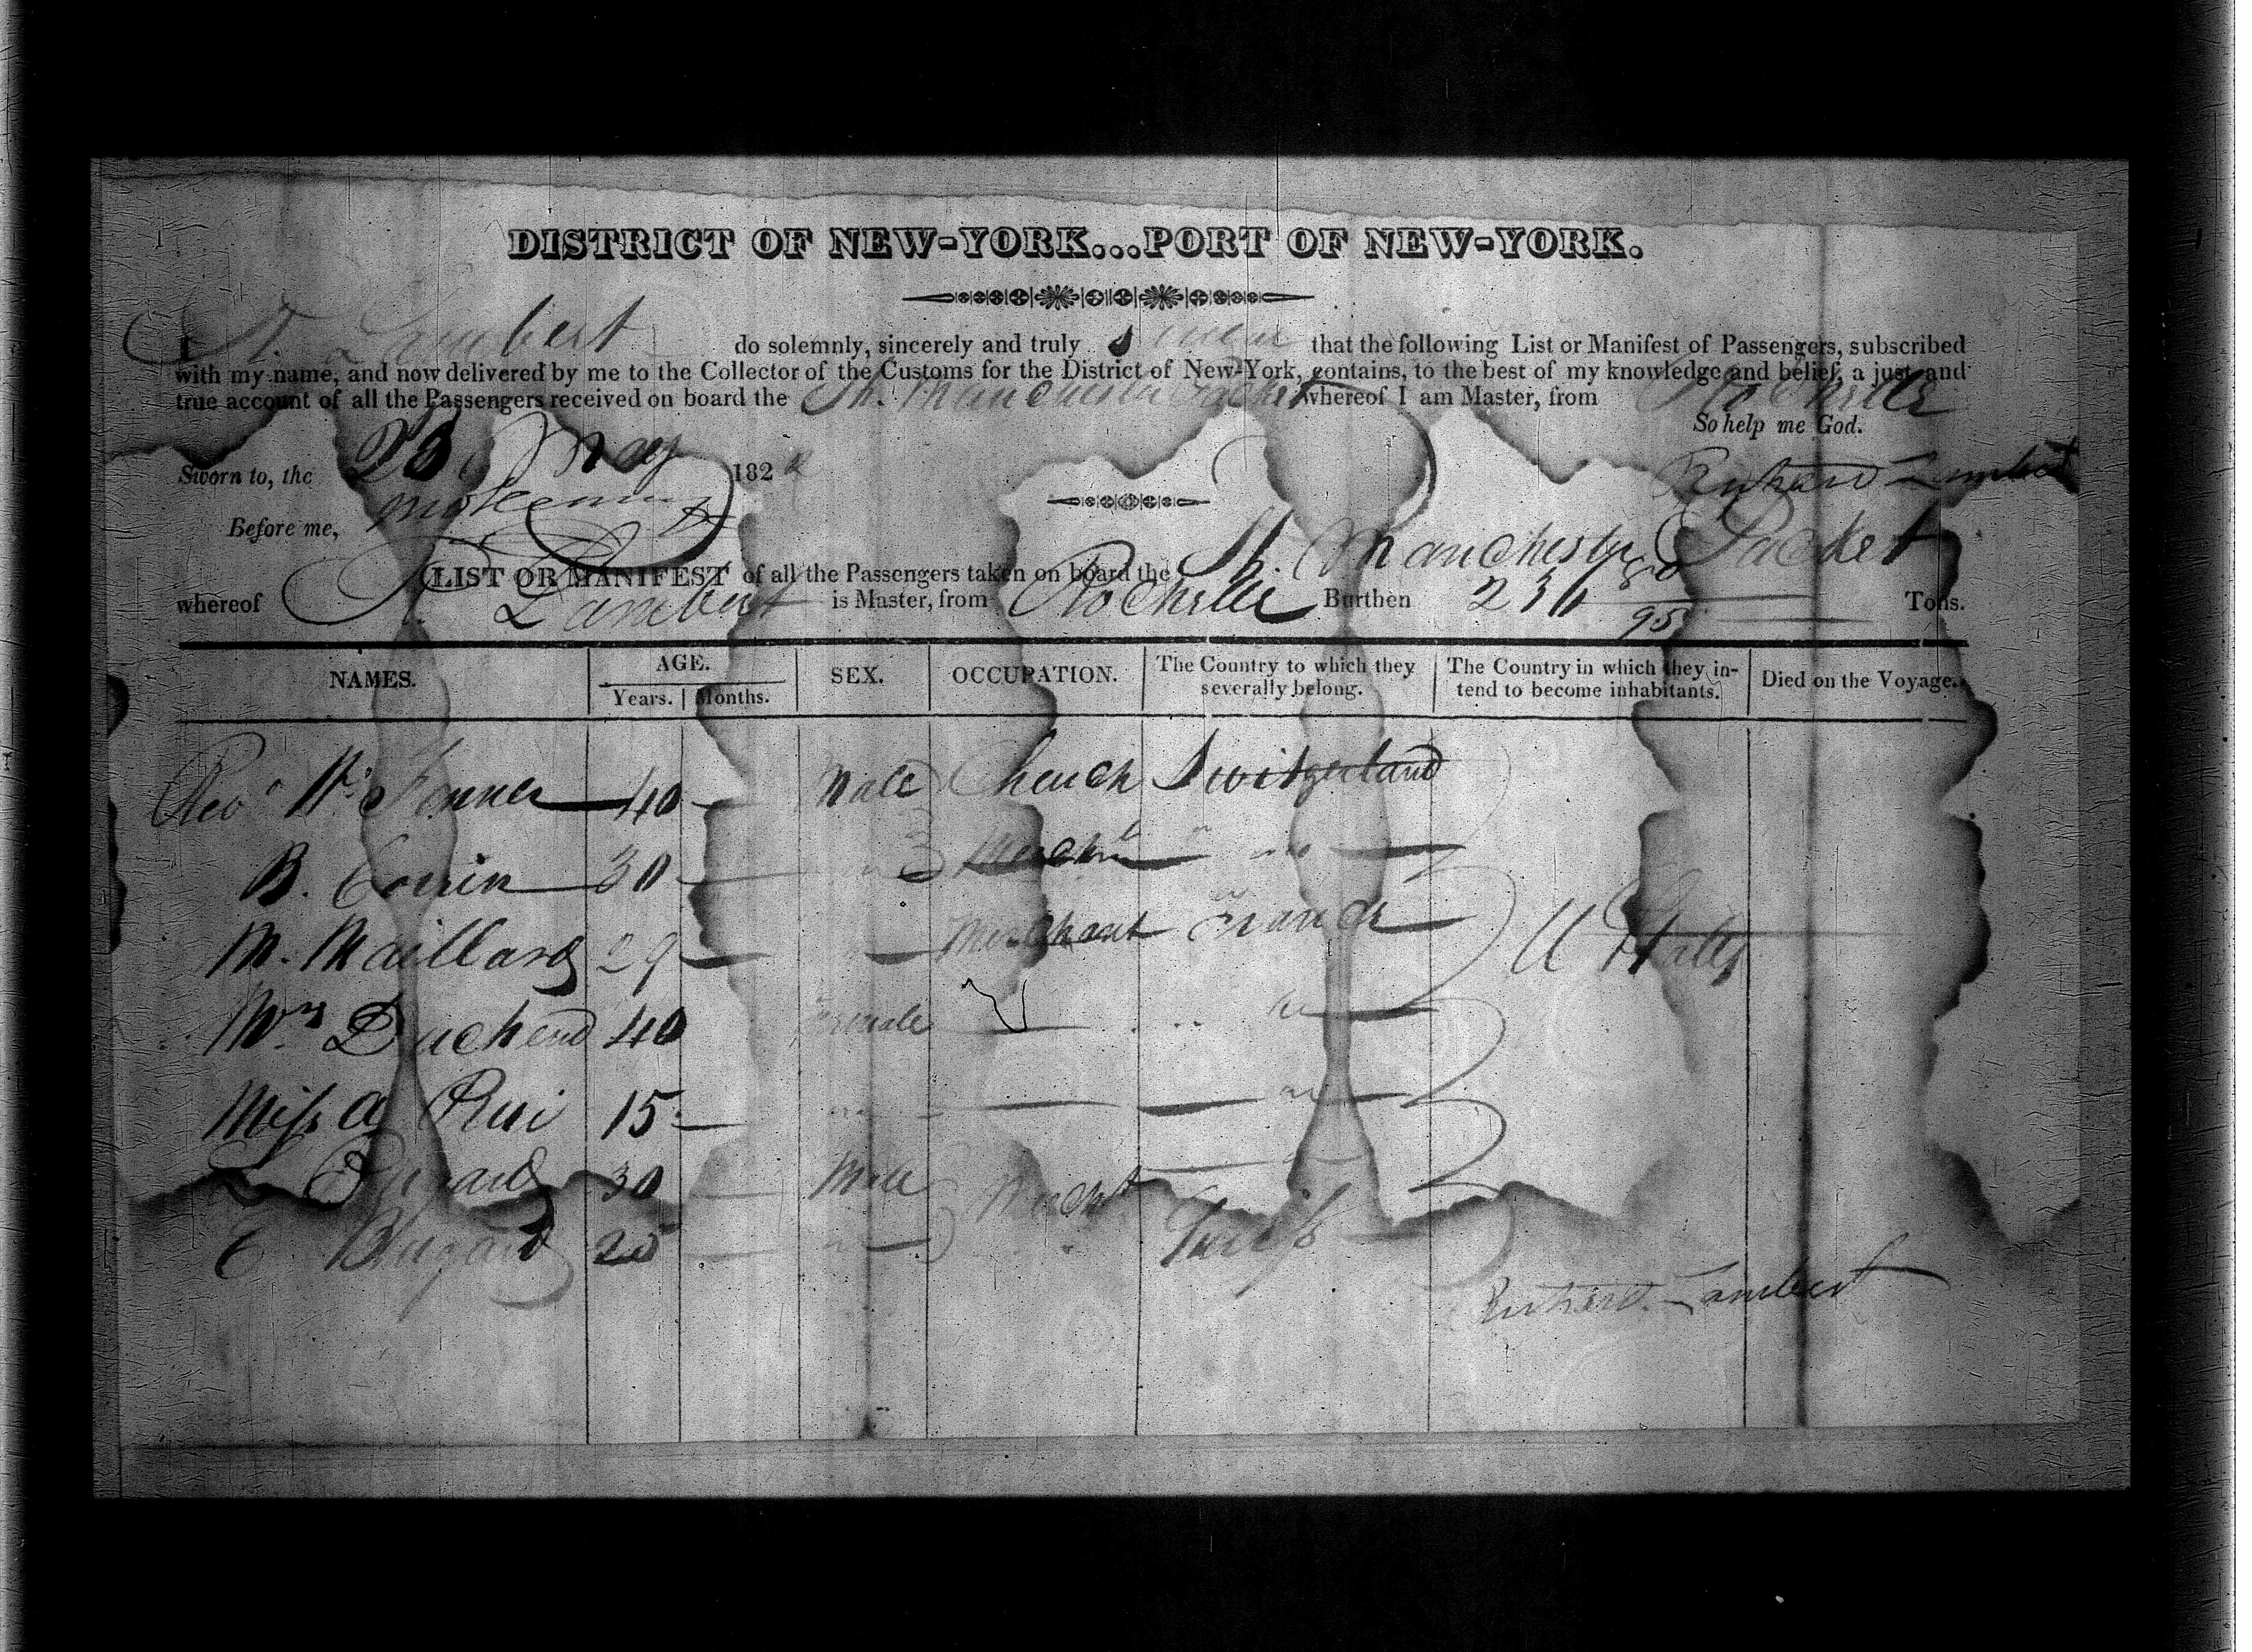 DISTRICT OF NEW-YORK...PORT OF NEW-YORK.
I R. Lambert do solemnly, sincerely and truly swear that the following List or Manifest of Passengers, subscribed
with my name, and now delivered by me to the Collector of the Customs for the District of New-York, contains, to the best of my knowledge and belief, a just and
true account of all the Passengers received on board the Sh. Manchester Packet whereof I am Master, from Rochelle
So help me God.
Sworn to, the 23 May 182
Richard Lambert
Before me,
LIST OR MANIFEST of all the Passengers taken on board the Sh. Manchester Packet
whereof R. Lambert is Master, from Rochelle Burthen 236 80/95 Tons.
NAMES. AGE. SEX. OCCUPATION. The Country to which they severally belong. The Country in which they intend to become inhabitants. Died on the Voyage.
Years. Months.
Revd 40 Male Church Switzerland
B. 30 Mercht
M. Maillard 29 Merchant France U States
Mrs 40 Female
Miss A 15
30 Male Mercht
E 25
Richard Lambert